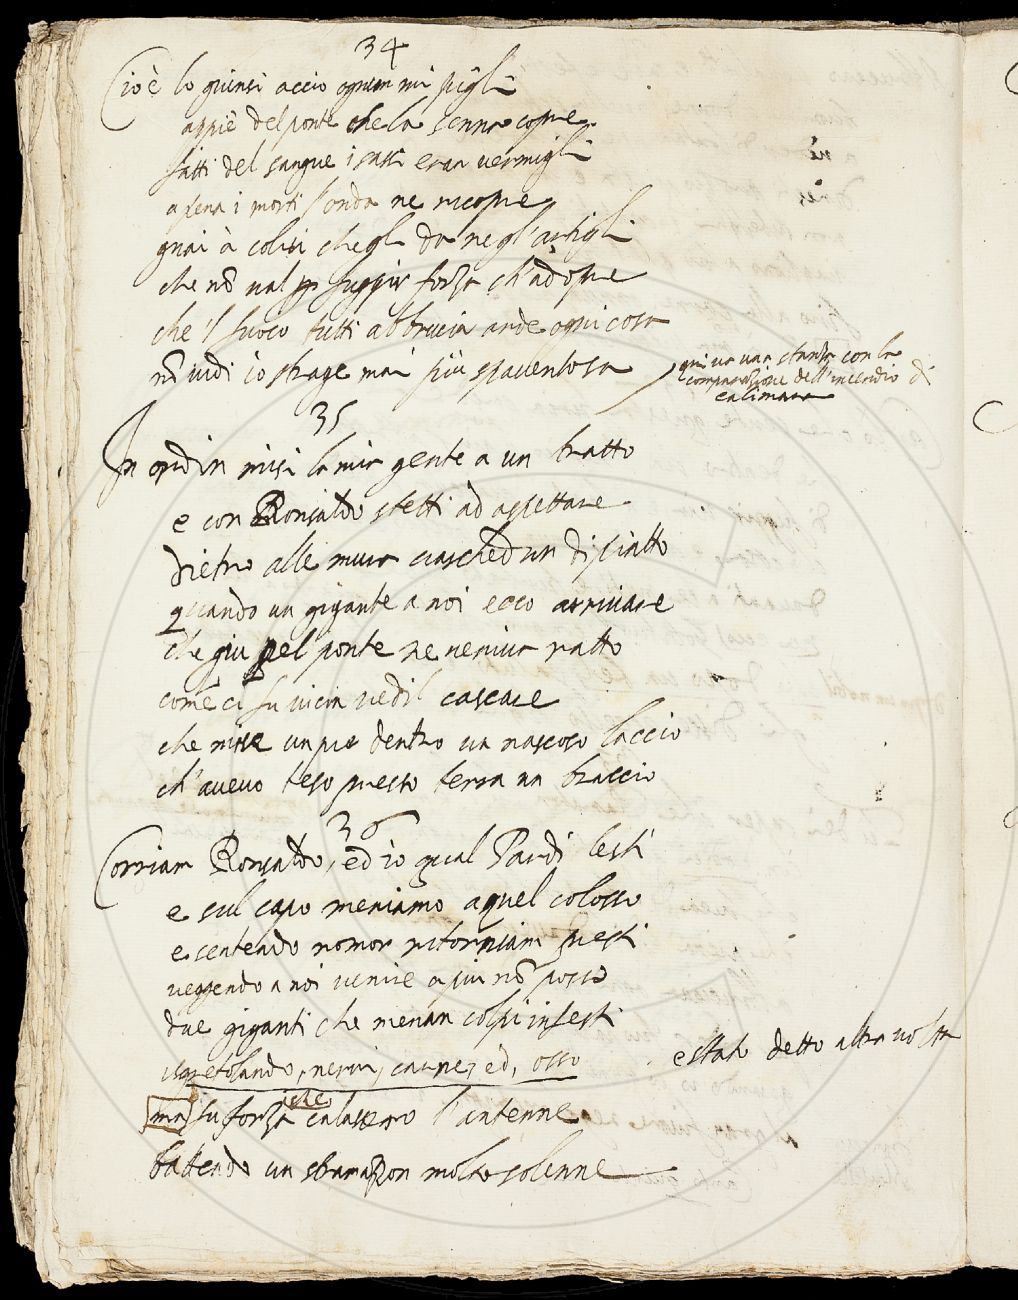 34
Cioè lo giunsi acciò ognun mi pigli
appiè del ponte che la senna copre
fatti del sangue i sassi eran vermigli
apena i morti l'onda ne ricopre
guai à colui che gl dà negl'artigli
che nõ val p fuggir forza ch'adopre
che 'l fuoco tutti abbrucia arde ogni cosa
nõ vidi io strage mai più spaventosa
qui va una stanza con la
comparazione dell'incendio di
calimara
35
In ordin misi la mia gente a un tratto
e con Ronsaldo stetti ad aspettare
dietro alle mura ciasched'un di piatto
quando un gigante a noi ecco arrivare
che giu pel ponte ne veniva ratto
come ci fu vicin vedil cascare
che misse un piè dentro un nascoso laccio
ch'avevo teso presso terra un braccio
36
Corriam Ronsaldo, ed io qual Pardi lesti
e sul capo meniamo a quel colosso
e sentendo romor ritorniam presti
veggendo a noi venire a più nõ posso
due giganti che menan colpi infesti
sgretolando, nervi, carne, ed, osso
e stato detto altra volta
ma fu forza che calassero l'antenne
battendo un stramazzon molto solenne